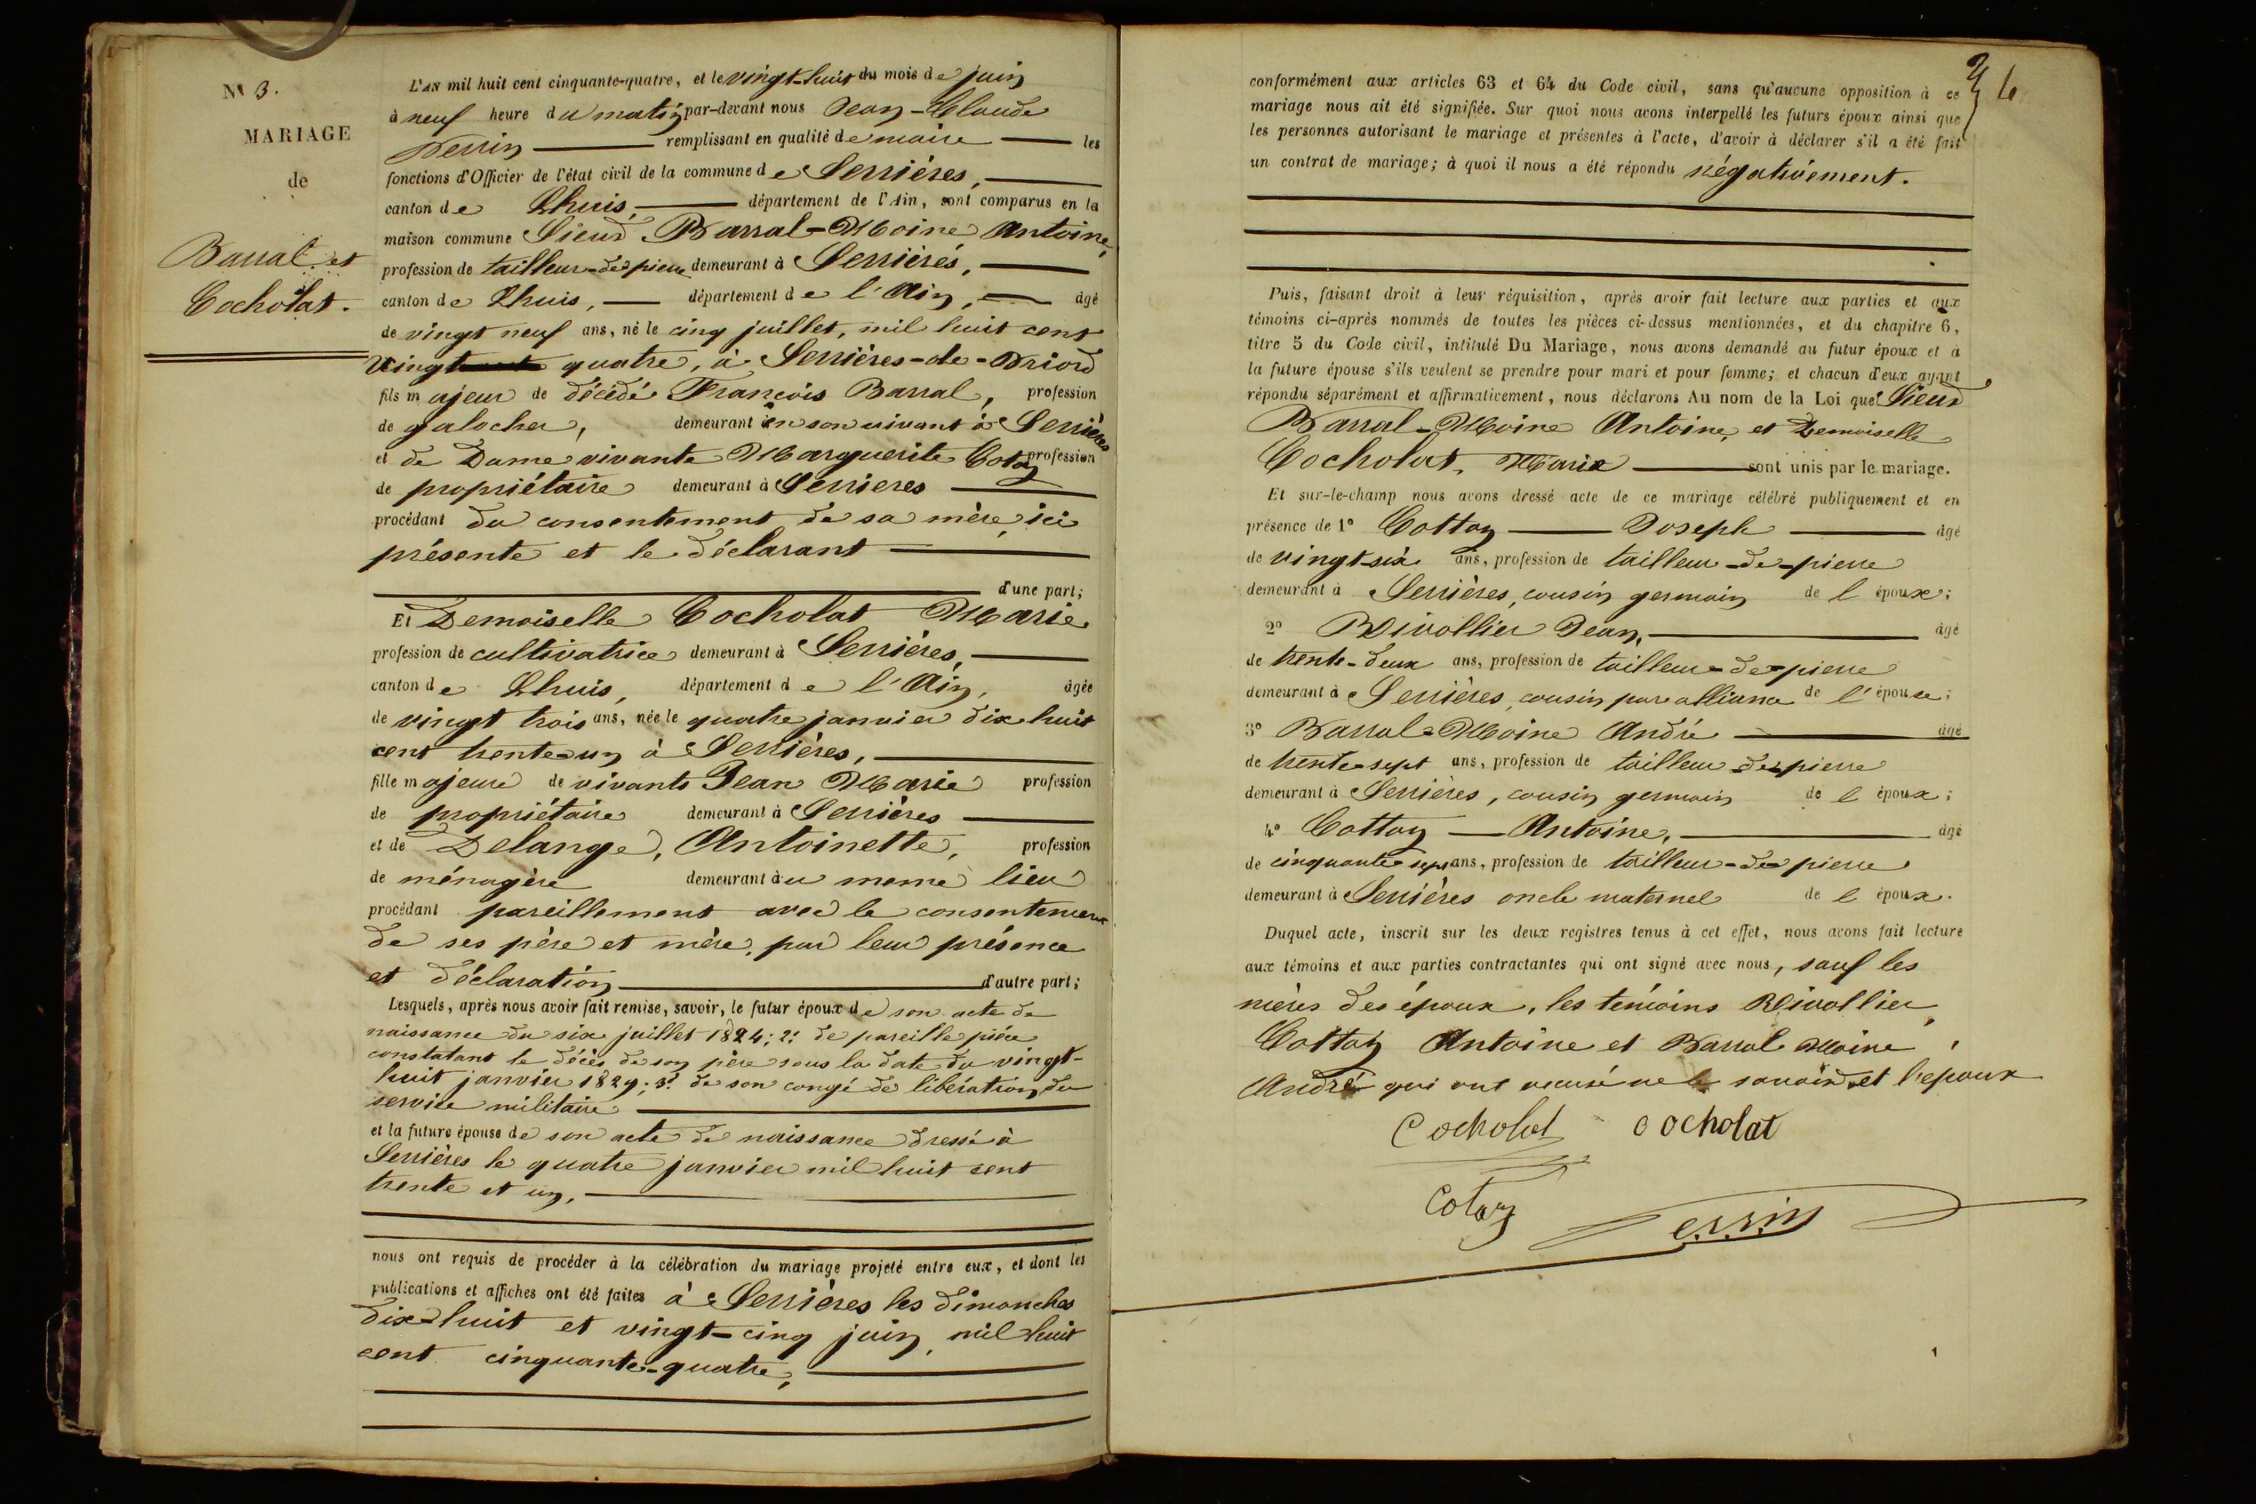 N° 3.
MARIAGE
de
Barral et
Cocholat.
L'AN mil huit cent cinquante-quatre, et le vingt-huit du mois de juin
à neuf heure du matin par-devant nous Jean-Claude
Perrin remplissant en qualité de maire les
fonctions d'Officier de l'état civil de la commune de Serrières,
canton de Lhuis, département de l'Ain, sont comparus en la
maison commune Sieur Barral-Moine Antoine,
profession de tailleur-de-pierre demeurant à Serrières,
canton de Lhuis, département de l'Ain, âgé
de vingt neuf ans, né le cinq juillet, mil huit cent
vingt quatre, à Serrières-de-Briord
fils majeur de décédé François Barral, profession
de galocher, demeurant en son vivant à Serrières
et de Dame vivante Marguerite Cotay profession
de propriétaire demeurant à Serrieres
procédant du consentement de sa mère, ici
présente et le déclarant
d'une part;
Et Demoiselle Cocholat Marie
profession de cultivatrice demeurant à Serrières,
canton de Lhuis, département de l'Ain, âgée
de vingt trois ans, née le quatre janvier dix huit
cent trente-un à Serrières,
fille majeure de vivants Jean Marie profession
de propriétaire demeurant à Serrières
et de Delange, Antoinette, profession
de ménagère demeurant au meme lieu
procédant pareillement avec le consentement
de ses père et mère, par leur présence
et déclaration d'autre part;
Lesquels, après nous avoir fait remise, savoir, le futur époux de son acte de
naissance du six juillet 1824; 2° de pareille pièce
constatant le décès de son père sous la date du vingt-
huit janvier 1829; 3° de son congé de libération du
service militaire
et la future épouse de son acte de naissance dressé à
Serrières le quatre janvier mil huit cent
trente et un,
nous ont requis de procéder à la célébration du mariage projeté entre eux, et dont les
publications et affiches ont été faites à Serrières les dimanches
dix-huit et vingt-cinq juin, mil huit
cent cinquante-quatre,
conformément aux articles 63 et 64 du Code civil, sans qu'aucune opposition à ce
mariage nous ait été signifiée. Sur quoi nous avons interpellé les futurs époux ainsi que
les personnes autorisant le mariage et présentes à l'acte, d'avoir à déclarer s'il a été fait
un contrat de mariage; à quoi il nous a été répondu négativement.
Puis, faisant droit à leur réquisition, après avoir fait lecture aux parties et aux
témoins ci-après nommés de toutes les pièces ci-dessus mentionnées, et du chapitre 6,
titre 5 du Code civil, intitulé Du Mariage, nous avons demandé au futur époux et à
la future épouse s'ils veulent se prendre pour mari et pour femme; et chacun d'eux ayant
répondu séparément et affirmativement, nous déclarons Au nom de la Loi que Sieur
Barral-Moine Antoine, et Demoiselle
Cocholat, Marie sont unis par le mariage.
Et sur-le-champ nous avons dressé acte de ce mariage célébré publiquement et en
présence de 1° Cottay Joseph âgé
de vingt-six ans, profession de tailleur-de-pierre
demeurant à Serrières, cousin germain de l époux;
2° Rivollier Jean, âgé
de trente-deux ans, profession de tailleur-de-pierre
demeurant à Serrières, cousin par alliance de l'épouse;
3° Barral-Moine André âgé
de trente-sept ans, profession de tailleur-de-pierre
demeurant à Serrières, cousin germain de l époux;
4° Cottay Antoine, âgé
de cinquante-sept ans, profession de tailleur-de-pierre
demeurant à Serrières oncle maternel de l époux.
Duquel acte, inscrit sur les deux registres tenus à cet effet, nous avons fait lecture
aux témoins et aux parties contractantes qui ont signé avec nous, sauf les
mères des époux, les temoins Rivollier,
Cottay Antoine et Barral Moine
André qui ont accusé ne le savoir et l'epoux
Cocholat cocholat
Cotay
Perrin